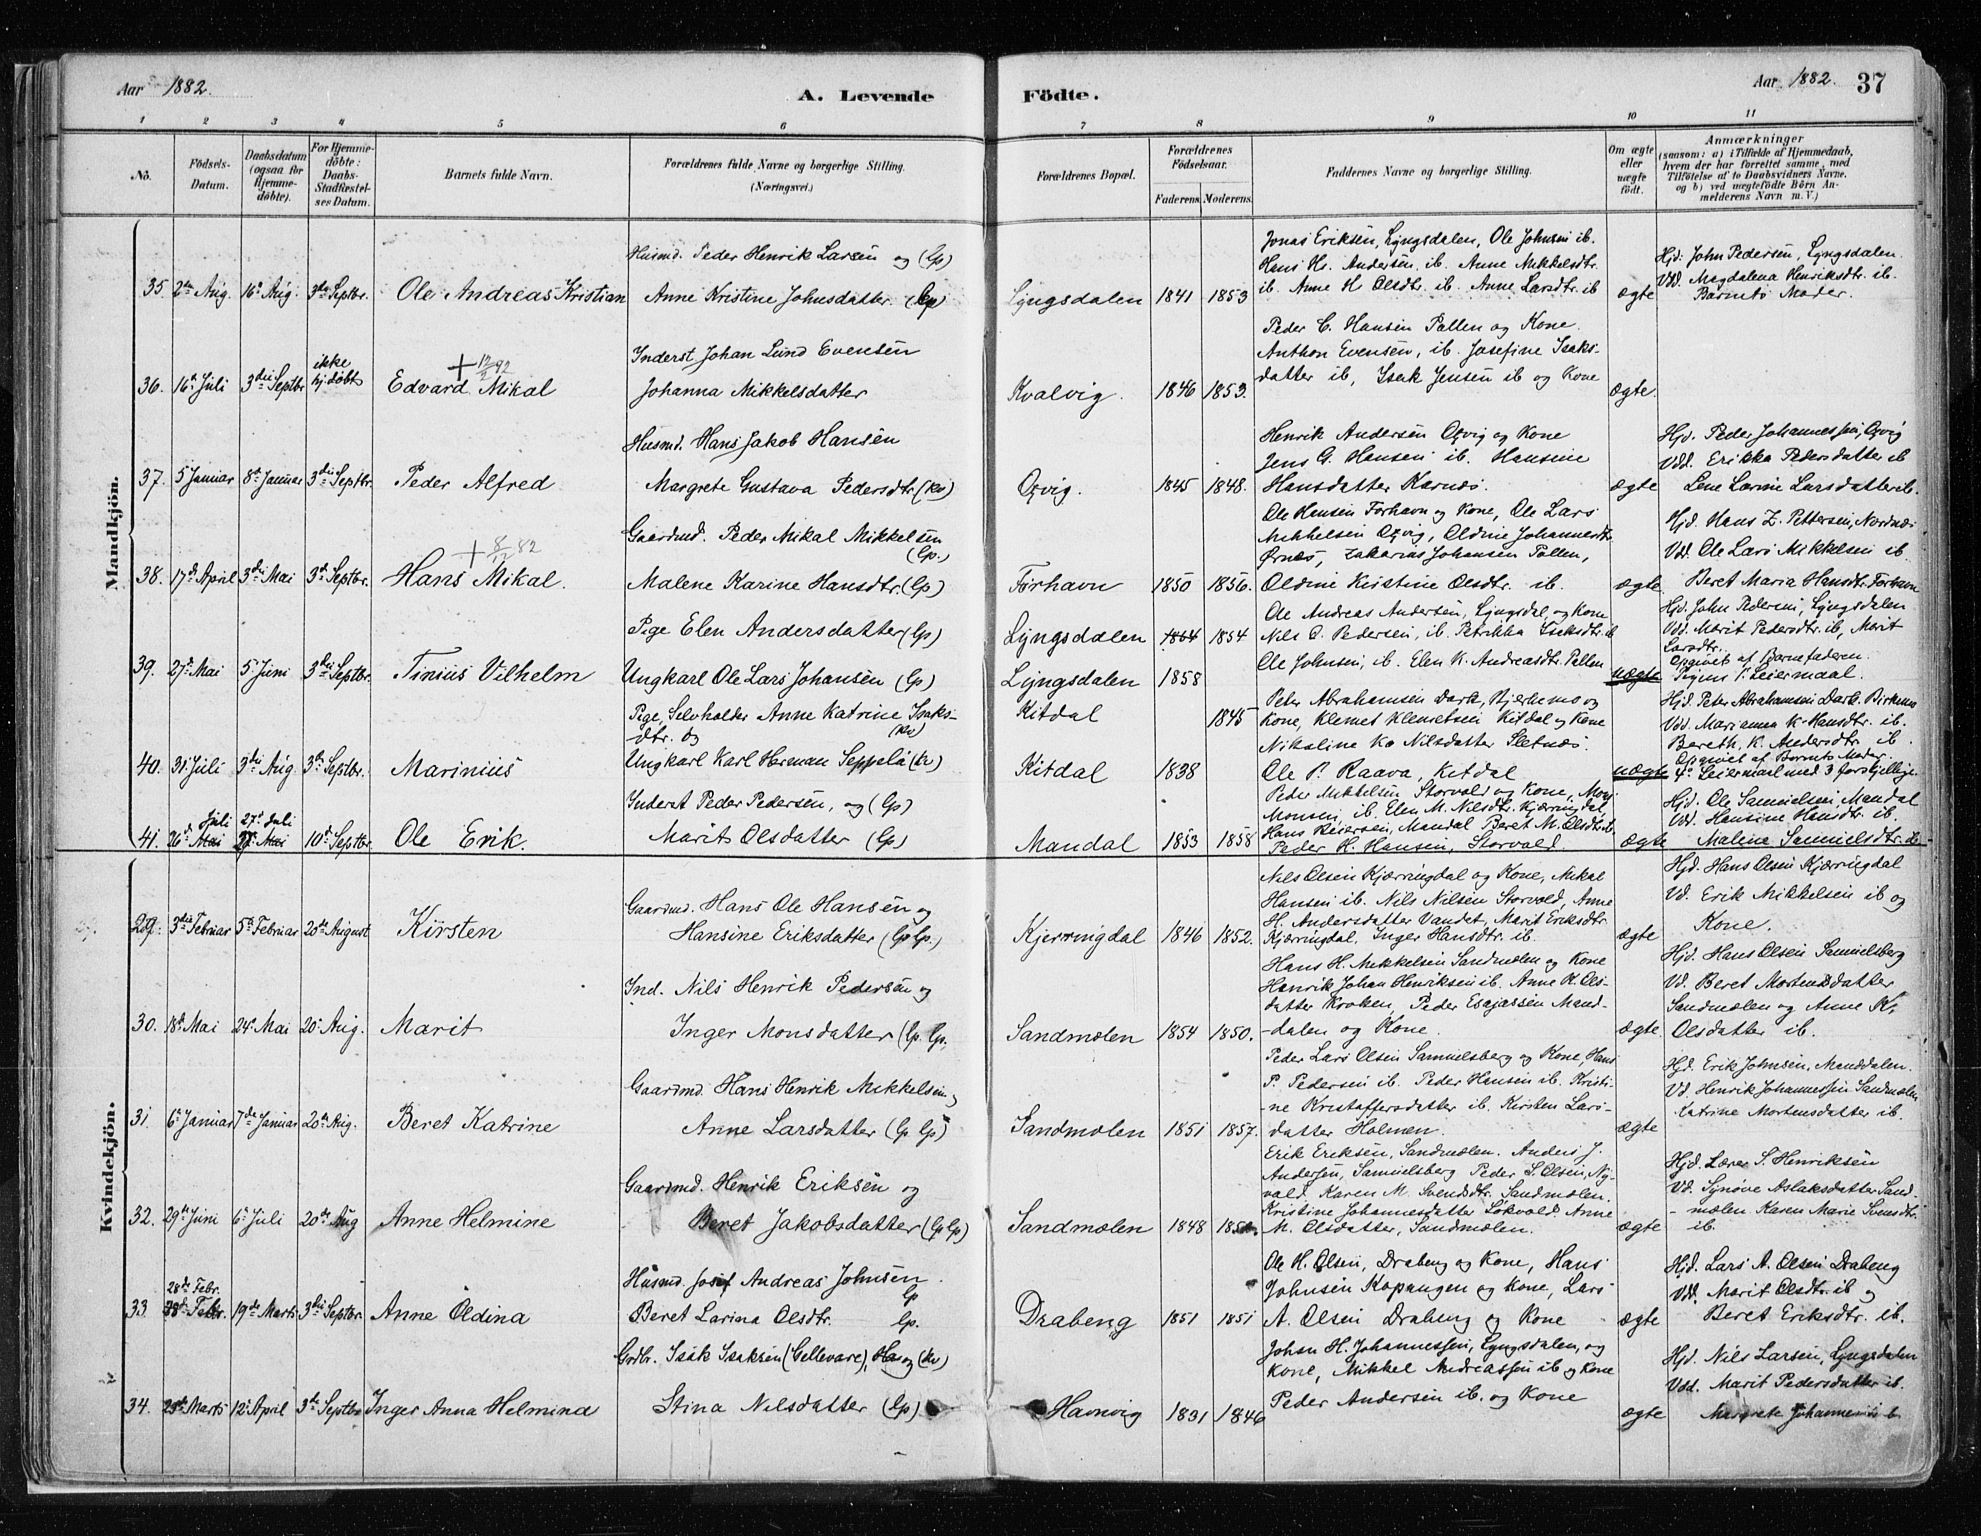 Aar 1882.
A. Levende Födte.
Aar 1882. 37
1 2 3 4 5 6 7 8 9 10 11
No.
Födsels-Datum.
Daabsdatum (ogsaa for Hjemmedöbte).
For Hjemmedöbte: Daabs-Stadfæstelses Datum.
Barnets fulde Navn.
Forældrenes fulde Navne og borgerlige Stilling.
(Næringsvei.)
Forældrenes Bopæl.
Forældrenes Födselsaar.
Faderens. Moderens.
Faddernes Navne og borgerlige Stilling.
Om ægte eller uægte födt.
Anmærkninger
(saasom: a) i Tilfælde af Hjemmedaab,
hvem der har forrettet samme, med
Tilföielse af to Daabsvidners Navne,
og b) ved uægtefödte Börn An-
melderens Navn m. V.)
Mandkjön.
Husmd. Peder Henrik Larsen og (Lp)
35. 2den Aug. 16de Aug. 3die Septbr. Ole Andreas Kristian Anne Kristine Johnsdatter (Lp) Lyngsdalen 1841 1853 ægte
Jonas Eriksen, Lyngsdalen, Ole Johnsen ib.
Hans Hs. Andersen, ib. Anne Mikkelsdtr.
ib. Anne H Olsdtr. ib. Anne Larsdtr. ib
Hjd: John Pedersen, Lyngsdalen.
Vdd. Magdalena Henriksdtr. ib.
Barnets Moder.
+ 12/2 92
Inderst Johan Lund Evensen
36. 16de Juli 3die Septbr ikke hj. døbt Edvard Mikal Johanna Mikkelsdatter Kvalvig. 1846 1853. ægte.
Peder C. Hansen Pollen og Kone.
Anthon Evensen, ib. Josefine Isaks-
datter ib, Isak Jensen ib og Kone
Husmd. Hans Jakob Hansen
37. 5 Januar 8de Januar 3die Septbr. Peder Alfred Margrete Gustava Pedersdtr. (Kv) Oxvig. 1845 1848. ægte
Henrik Andersen Oxvig og Kone
Jens G. Hansen ib. Hansine
Hansdatter Karnæs.
Hjd. Peder Johannessen, Oxvig
Vdd. Erikka Pedersdatter ib
Lene Larine Larsdatter ib.
+ 8/12 82
Gaardmd. Peder Mikal Mikkelsen (Lp.)
38. 17de April 3die Mai 3de Septbr. Hans Mikal. Malene Karine Hansdtr. (Lp) Førhavn 1850 1856. ægte
Ole Hansen Førhavn og Kone, Ole Lars
Mikkelsen Oxvig, Oldine Johannesdtr.
Ørnæs, Zakarias Johansen Pollen,
Oldine Kristine Olsdtr. ib.
Hjd. Hans Z. Pettersen, Nordnæs
Vdd. Ole Lars Mikkelsen ib
Beret Maria Hansdtr. Førhavn
Pige Elen Andersdatter (Lp) Lyngsdalen 1864 1854
39. 27de Mai 5 Juni 3die Septbr. Tinius Vilhelm Ungkarl Ole Lars Johansen (Lp) Lyngsdalen 1858 uægte
Ole Andreas Andersen, Lyngsdal og Kone
Nils O. Pedersen, ib. Petrikka Isaksdtr. ib
Ole Johnsen, ib. Elen K. Andreasdtr. Pollen
Hjd. John Pedersen, Lyngsdalen
Vdd. Marit Pedersdtr. ib, Marit
Larsdtr.
Opgivet af Barnefaderen.
Pigens 1ste Leiermaal.
Pige, Selvholder Anne Katrine Isaks-
dtr. og (Kv) Kitdal 1845
40. 31 Juli 3die Aug 3die Septbr. Marinius Ungkarl Karl Herman Seppelä (Kv) Kitdal 1838 uægte
Peter Abrahamsen Dark, Bjerkemo og
Kone, Klemet Klemetsen Kitdal og Kone
Nikoline Ko Nilsdatter Sletnæs.
Ole P. Raava, Kitdal
Hjd. Peter Abrahamsen Dark Birkemo
Vdd. Marianna K Hansdtr. ib.
Bereth. K. Andersdtr. ib.
Opgivet af Barnets Moder
4de Leiermaal med 3 forskjellige.
Inderst Peder Pedersen, og (Lp)
41. 26de Juli Mai 27de Juli 27 Mai 10de Septbr Ole Erik. Marit Olsdatter (Lp) Mandal 1853 1858 ægte
Peder Mikkelsen Storvold og Kone, Mons
Monsen, ib. Elen M. Nilsdtr. Kjærringdal
Hans Peiersen, Mandal Beret M. Olsdtr. ib.
Peder H. Hansen, Storvold.
Hjd. Ole Samuelsen Mandal
Vdd. Hansine Hansdtr. ib.
Malene Samuelsdtr. ib.
Kvindekjön.
Gaardmd. Hans Ole Hansen og
29. 3die Februar 5te Februar 20de August Kirsten Hansine Eriksdatter (Lp Lp.) Kjerringdal 1846 1852. ægte
Nils Olsen Kjærringdal og Kone, Mikal
Hansen ib. Nils Nilsen Storvold, Anne
H. Andersdatter Vandet, Marit Eriksdtr.
Kjærringdal, Inger Hansdtr. ib.
Hjd. Hans Olsen Kjærringdal
Vd. Erik Mikkelsen ib og
Kone.
Ind. Nils Henrik Pedersen og
30. 18de Mai 24de Mai 20de Aug. Marit Inger Monsdatter (Lp. Lp. Sandmælen 1854 1850. ægte
Hans H. Mikkelsen Sandmælen og Kone
Henrik Johan Henriksen ib. Anne K. Ols-
datter Kroken, Peder Esajassen Mand-
dalen og Kone.
Hjd. Hans Olsen Samuelsberg
Vd. Beret Mortensdatter
Sandmælen og Anne K.
Olsdatter ib.
Gaardmd. Hans Henrik Mikkelsen og
31. 6te Januar 7de Januar 20de Aug. Beret Katrine Anne Larsdatter (Lp Lp) Sandmælen 1851 1857. ægte
Peder Lars Olsen Samuelsberg og Kone, Hans
P. Pedersen ib. Peder Hansen ib. Kristi-
ne Kristaffersdatter ib. Kirsten Lars-
datter Holmen.
Hjd. Erik Johnsen, Manddalen.
Vd. Henrik Johannessen Sandmælen
Katrine Mortensdatter ib.
Gaardmd. Henrik Eriksen og
32. 29de Juni 6te Juli 20de Aug Anne Helmine Beret Jakobsdatter (Lp Lp) Sandmælen 1848 ægte
Erik Eriksen, Sandmælen. Anders J.
Andersen, Samuelsberg Peder S. Olsen, Ny-
vold. Karen M. Svendsdtr. Sandmælen.
Kristine Johannesdatter Løkvold. Anne
M. Olsdatter, Sandmælen.
Hjd. Lærer S. Henriksen
Vd. Synøve Aslaksdatter Sand-
mælen Karen Marie Svensdtr.
ib.
Husmd. Josef Andreas Johnsen Lp
33 28de Febr. 28de Febr. 19de Marts 3die Septbr. Anne Oldina Beret Larina Olsdtr. Lp. Drabeng 1851 1851 ægte
Ole H. Olsen, Drabeng og Kone, Hans
Johnsen Kopangen og Kone, Lars
A. Olsen Drabeng og Kone
Hjd. Lars A. Olsen Drabeng
Vdd. Marit Olsdtr. ib og
Beret Eriksdtr. ib.
Grdbr. Isak Isaksen (Gellevare), og (Kv)
34. Marts 12te April 3die Septbr Inger Anna Helmina Stina Nilsdatter (Lp) Havnvig 1831 1846 ægte
Johan H. Johannessen, Lyngsdalen, og
Kone, Mikkel Andreassen ib og Kone
Peder Andersen ib. og Kone
Hjd. Nils Larsen, Lyngsdalen
Vdd. Marit Pedersdatter ib.
Margrete ib